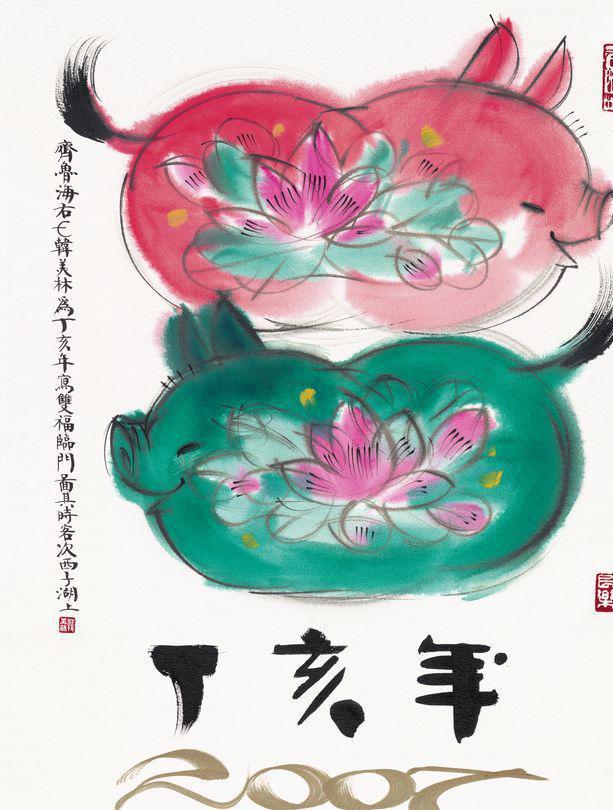 齊魯海右七韓美林為丁亥年寫雙福臨門圖其時客次西子湖上
丁亥年
2007